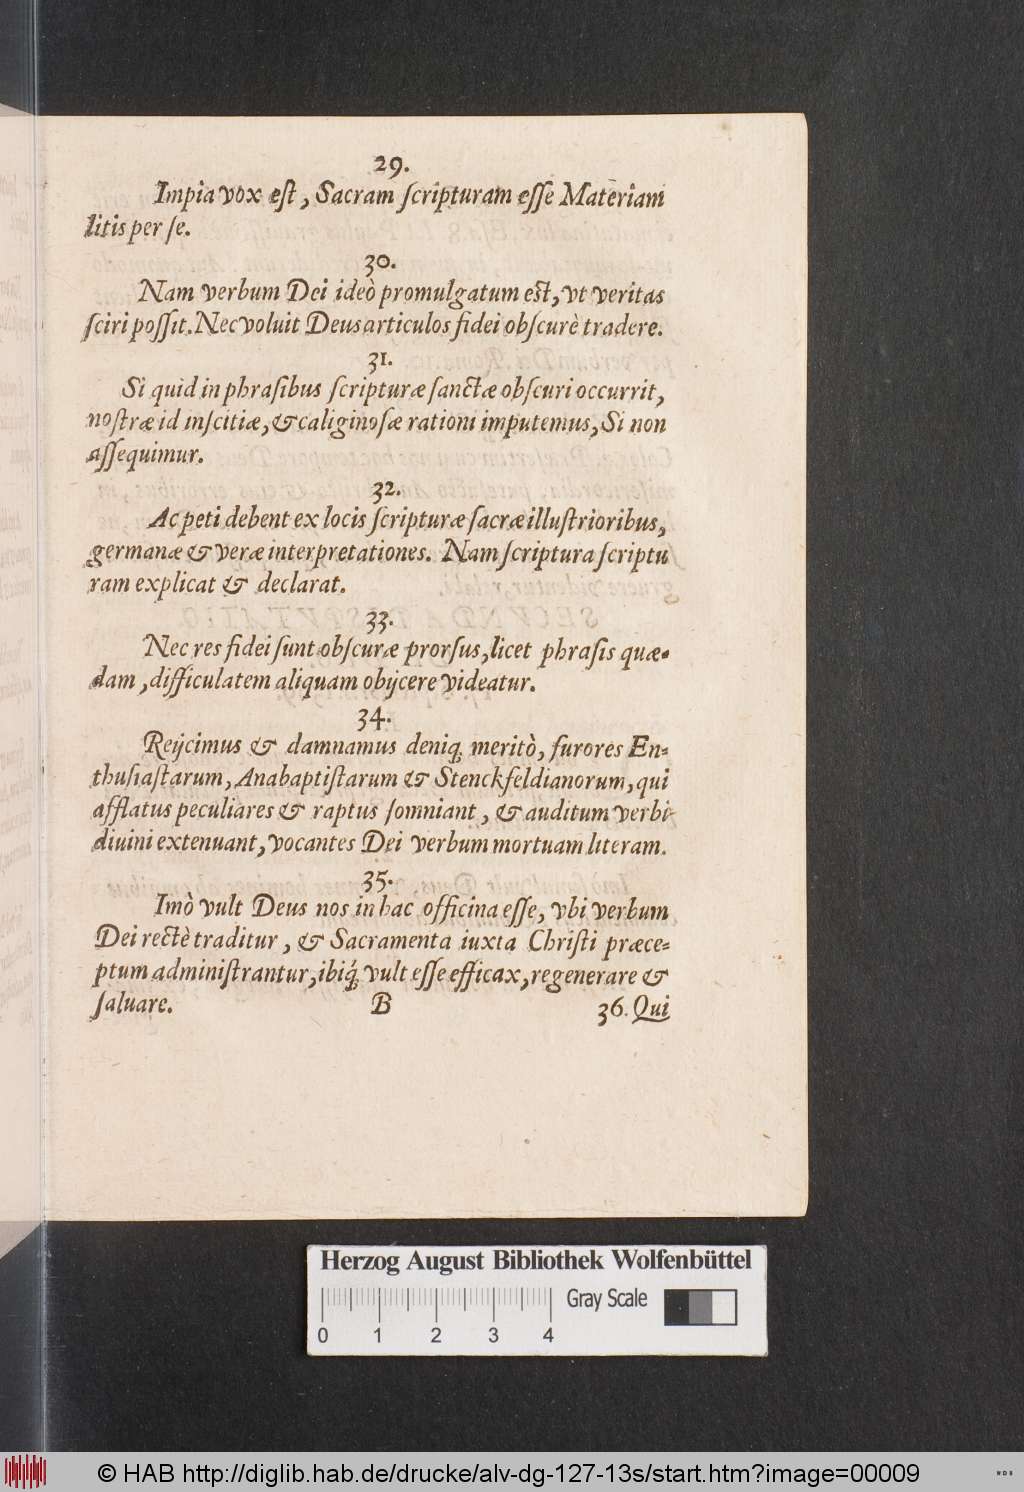 29.
Impia vox eſt, Sacram ſcripturam eſſe Materiam
litis per ſe.
30.
Nam verbum Dei ideò promulgatum eſt, vt veritas
ſciri poſſit. Nec voluit Deus articulos fidei obſcurè tradere.
31.
Si quid in phraſibus ſcripturæ ſanctæ obſcuri occurrit,
noſtræ id inſcitiæ, & caliginoſæ rationi imputemus, Si non
aſſequimur.
32.
Ac peti debent ex locis ſcripturæ ſacræ illuſtrioribus,
germanæ & veræ interpretationes. Nam ſcriptura ſcriptu
ram explicat & declarat.
33.
Nec res fidei ſunt obſcuræ prorſus, licet phraſis quæ-
dam, difficulatem aliquam obijcere videatur.
34.
Reijcimus & damnamus deniq; meritò, furores En-
thuſiaſtarum, Anabaptiſtarum & Stenckfeldianorum, qui
afflatus peculiares & raptus ſomniant, & auditum verbi
diuini extenuant, vocantes Dei verbum mortuam literam.
35.
Imò vult Deus nos in hac officina eſſe, vbi verbum
Dei rectè traditur, & Sacramenta iuxta Chriſti præce-
ptum adminiſtrantur, ibiq́; vult eſſe efficax, regenerare &
ſaluare. B 36. Qui
Herzog August Bibliothek Wolfenbüttel
Gray Scale
0 1 2 3 4
© HAB http://diglib.hab.de/drucke/alv-dg-127-13s/start.htm?image=00009